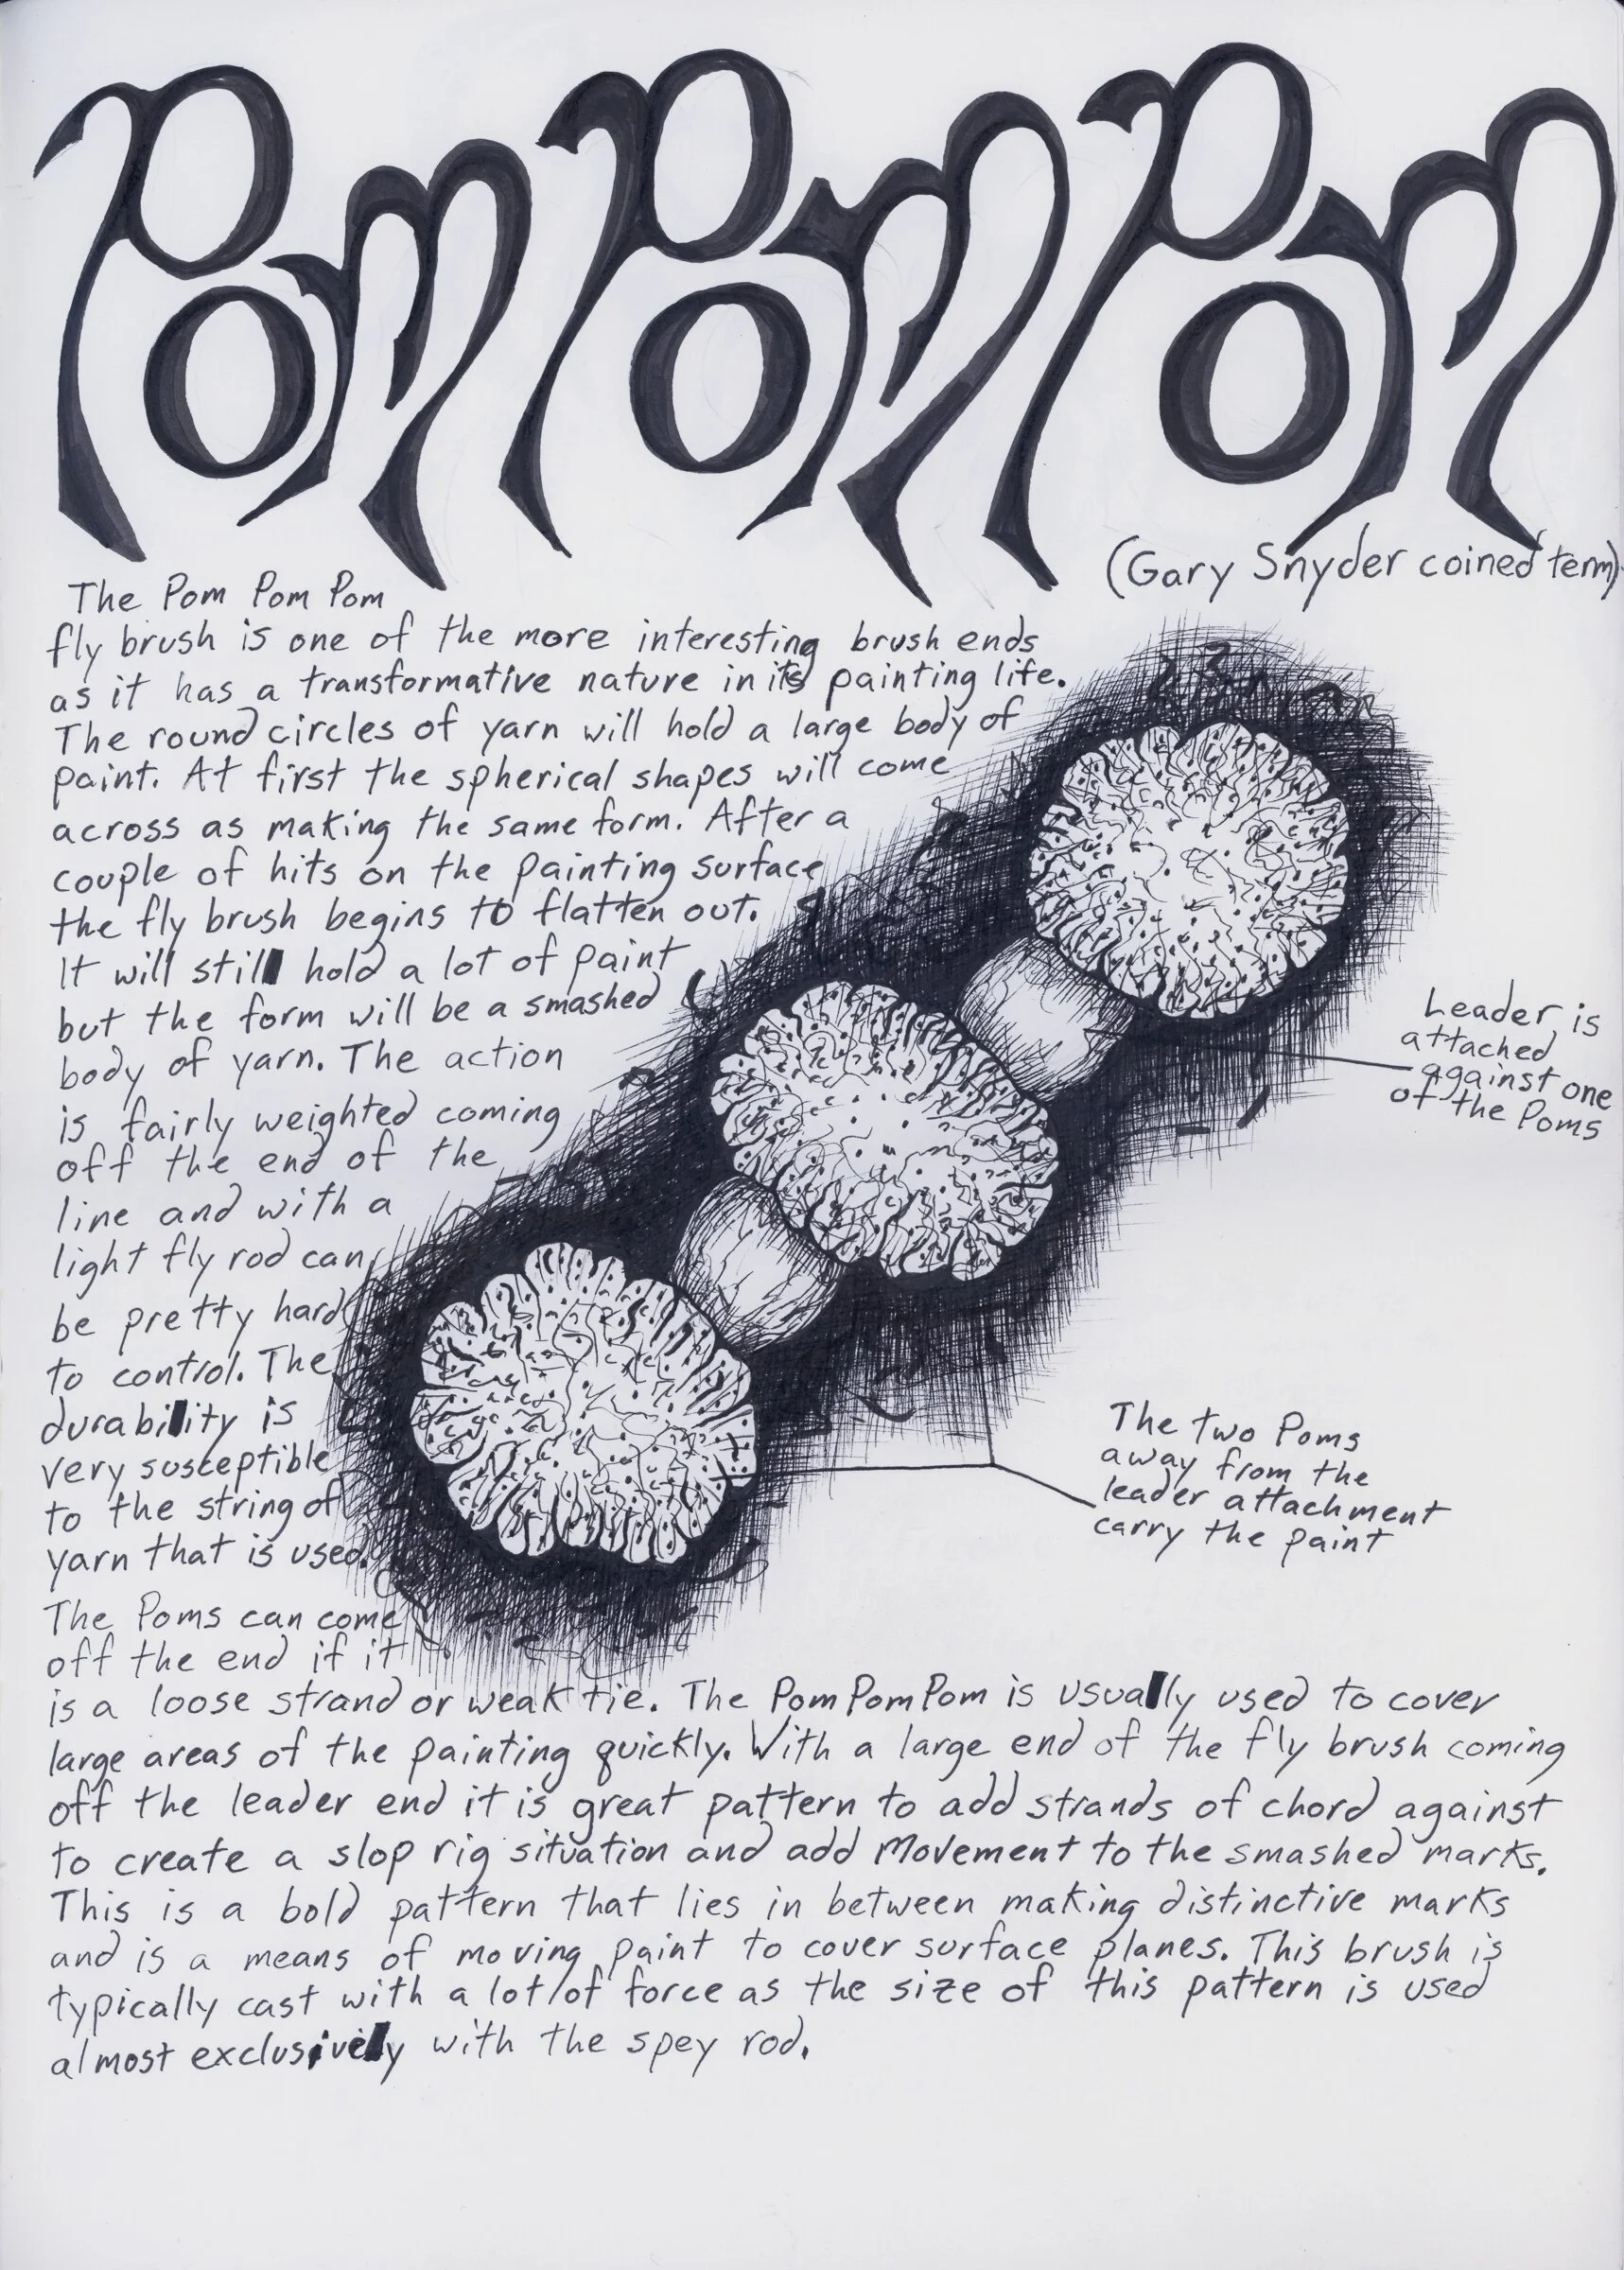 Pom Pom Pom
(Gary Snyder coined term)
The Pom Pom Pom
fly brush is one of the more interesting brush ends
as it has a transformative nature in its painting life.
The round circles of yarn will hold a large body of
paint. At first the spherical shapes will come
across as making the same form. After a
couple of hits on the painting surface
the fly brush begins to flatten out.
It will still hold a lot of paint
but the form will be a smashed
body of yarn. The action
is fairly weighted coming
off the end of the
line and with a
light fly rod can
be pretty hard
to control. The
durability is
very susceptible
to the string of
yarn that is used.
The Poms can come
off the end if it
is a loose strand or weak tie. The PomPomPom is usually used to cover
large areas of the painting quickly. With a large end of the fly brush coming
off the leader end it is great pattern to add strands of chord against
to create a slop rig situation and add Movement to the smashed marks.
This is a bold pattern that lies in between making distinctive marks
and is a means of moving paint to cover surface planes. This brush is
typically cast with a lot of force as the size of this pattern is used
almost exclusively with the spey rod.
Leader is
attached
against one
of the Poms
The two Poms
away from the
leader attachment
carry the paint